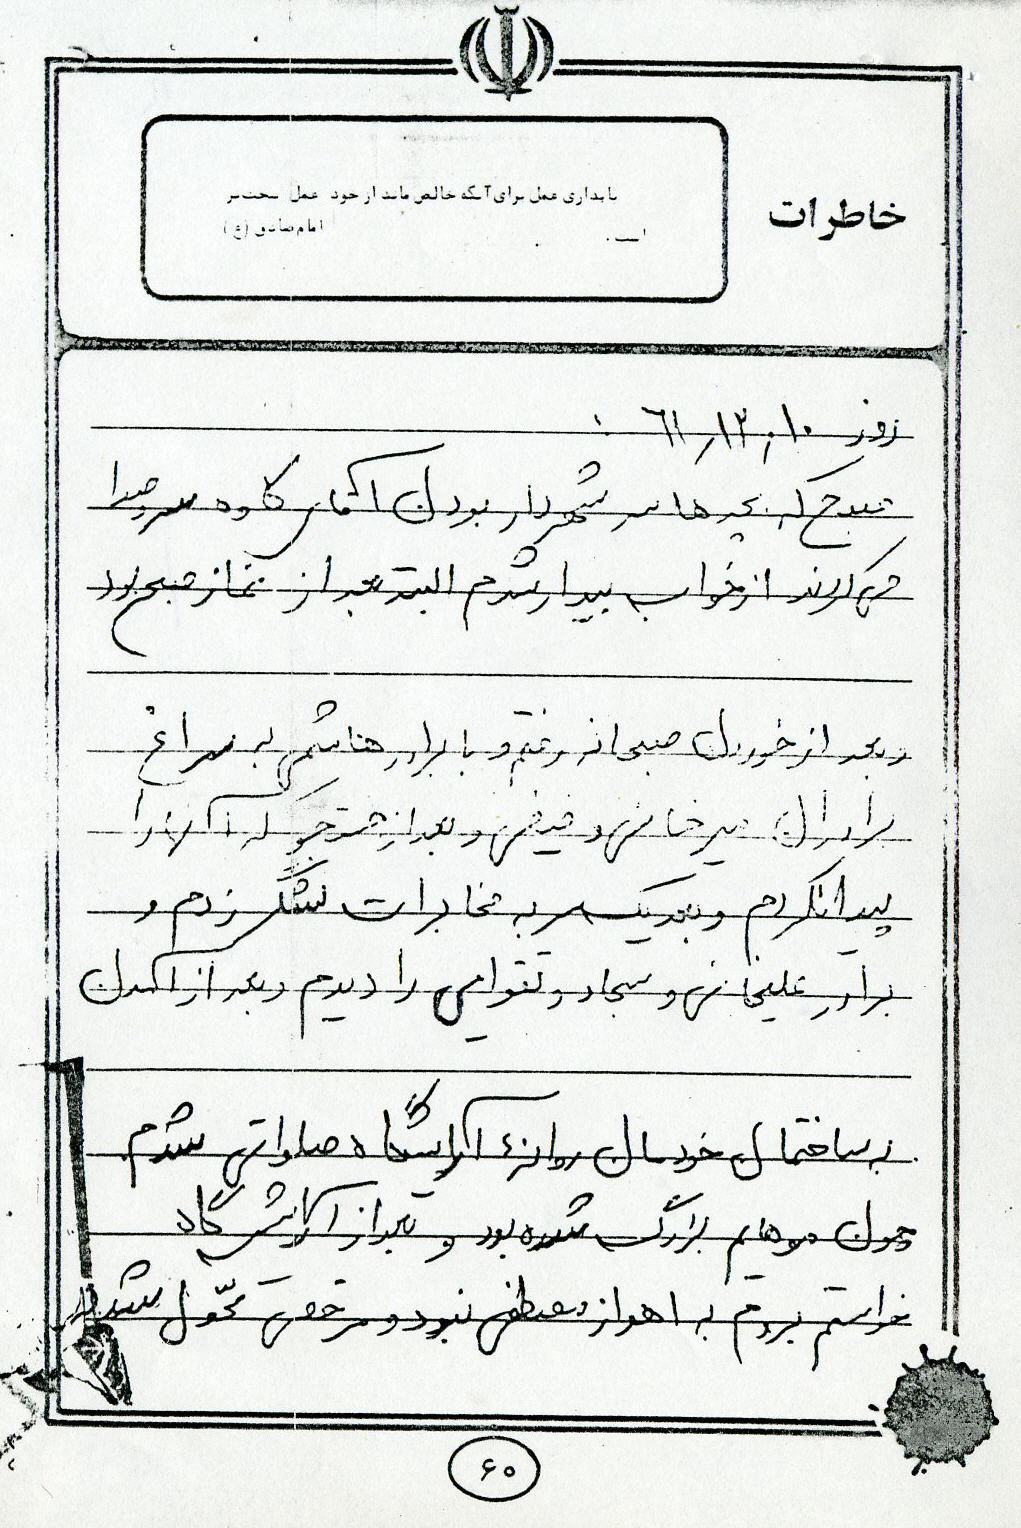 خاطرات
پایداری عمل برای آنکه خالص ماند از خود عمل سخت‌تر
است.
امام صادق (ع)
روز ۱۰ر۱۲ر۶۱
صبح که بچه‌ها سر شهردار بودن آقای کاوه سر و صدا
می‌کردند از خواب بیدار شدم البته بعد از نماز صبح بود
و بعد از خوردن صبحانه رفتم و با برادر هاشمی به سراغ
برادران میرخانی و ضیغمی و بعد از جستجو که آنها را
پیدا نکردم و بعد یکسر به مخابرات لشگر زدم و
برادر علیخانی و سجاد و تقوایی را دیدم و بعد از آمدن
به ساختمان خودمان روانهٔ آرایشگاه صلواتی شدم
چون موهایم بزرگ شده بود و بعد از آرایشگاه
خواستم بروم به اهواز مصطفی نبود و مرخصی محول شد
۶۰